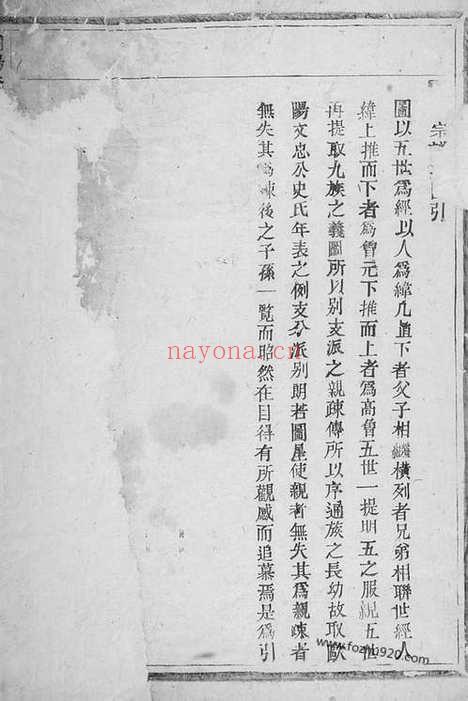 引
圖以五世爲經以人爲緯凡直下者父子相繼橫列者兄弟相聯世經人
緯上推而下者爲曾元下推而上者爲高曾五世一提明五之服親五世
再提取九族之義圖所以别支派之親疎傳所以序通族之長幼故取歐
陽文忠公史氏年表之例支分派别朗若圖星使親者無失其爲親疎者
無失其爲疎後之子孫一覧而昭然在目得有所觀感而追慕焉是爲引
nayona.cn
www.fozhu920.com